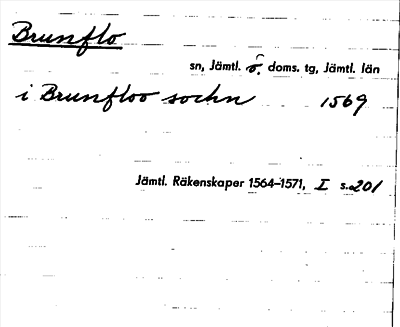 Brunflo
sn, Jämtl. ö. doms. tg, Jämtl. län
i Brunfloo sochn 1569
Jämtl. Räkenskaper 1564-1571, I s. 201